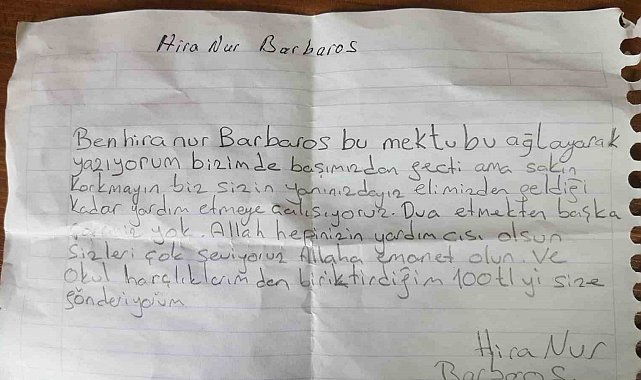 Hira Nur Barbaros
Ben hira nur Barbaros bu mektubu ağlayarak
yazıyorum bizimde başımızdan geçti ama sakın
korkmayın biz sizin yanınızdayız elimizden geldiği
kadar yardım etmeye çalışıyoruz. Dua etmekten başka
çaremiz yok. Allah hepinizin yardımcısı olsun
sizleri çok seviyoruz Allaha emanet olun. Ve
okul harçlıklarımdan biriktirdiğim 100tl yi size
gönderiyorum
Hira Nur
Barbaros